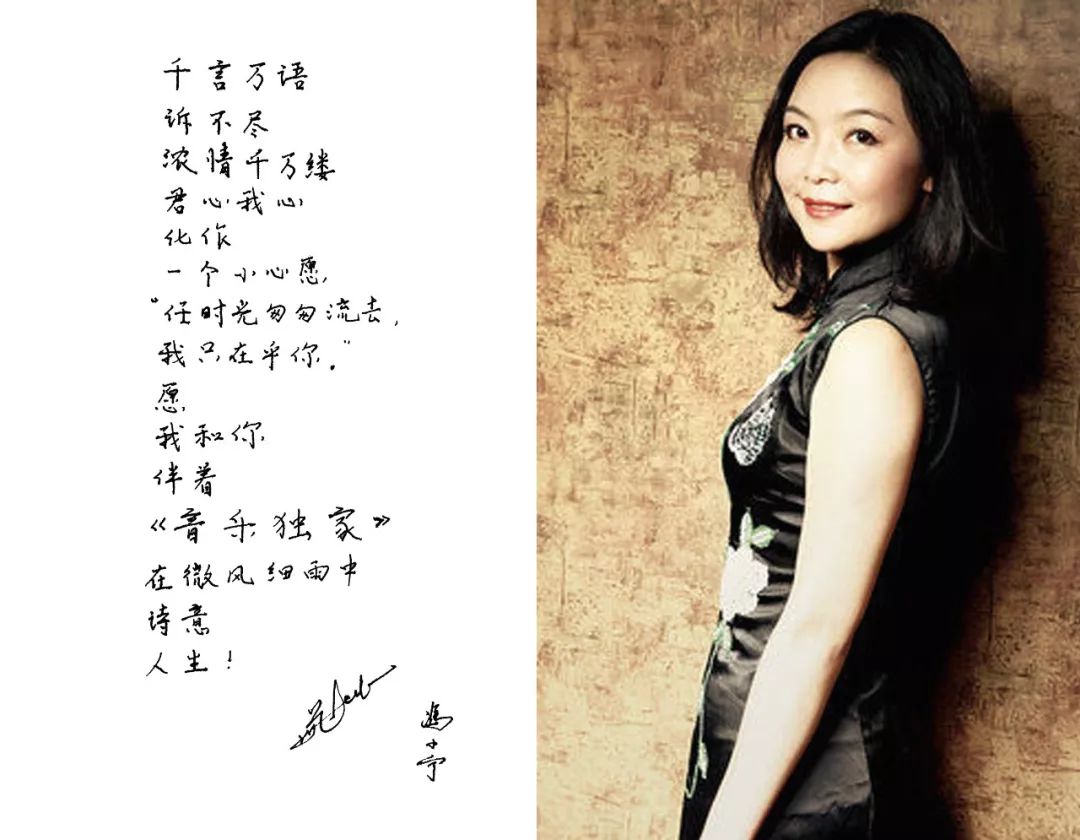 千言万语
诉不尽
浓情千万缕
君心我心
化作
一个小心愿,
“任时光匆匆流去,
我只在乎你。”
愿,
我和你
伴着
《音乐独家》
在微风细雨中
诗意
人生！
冯小宁